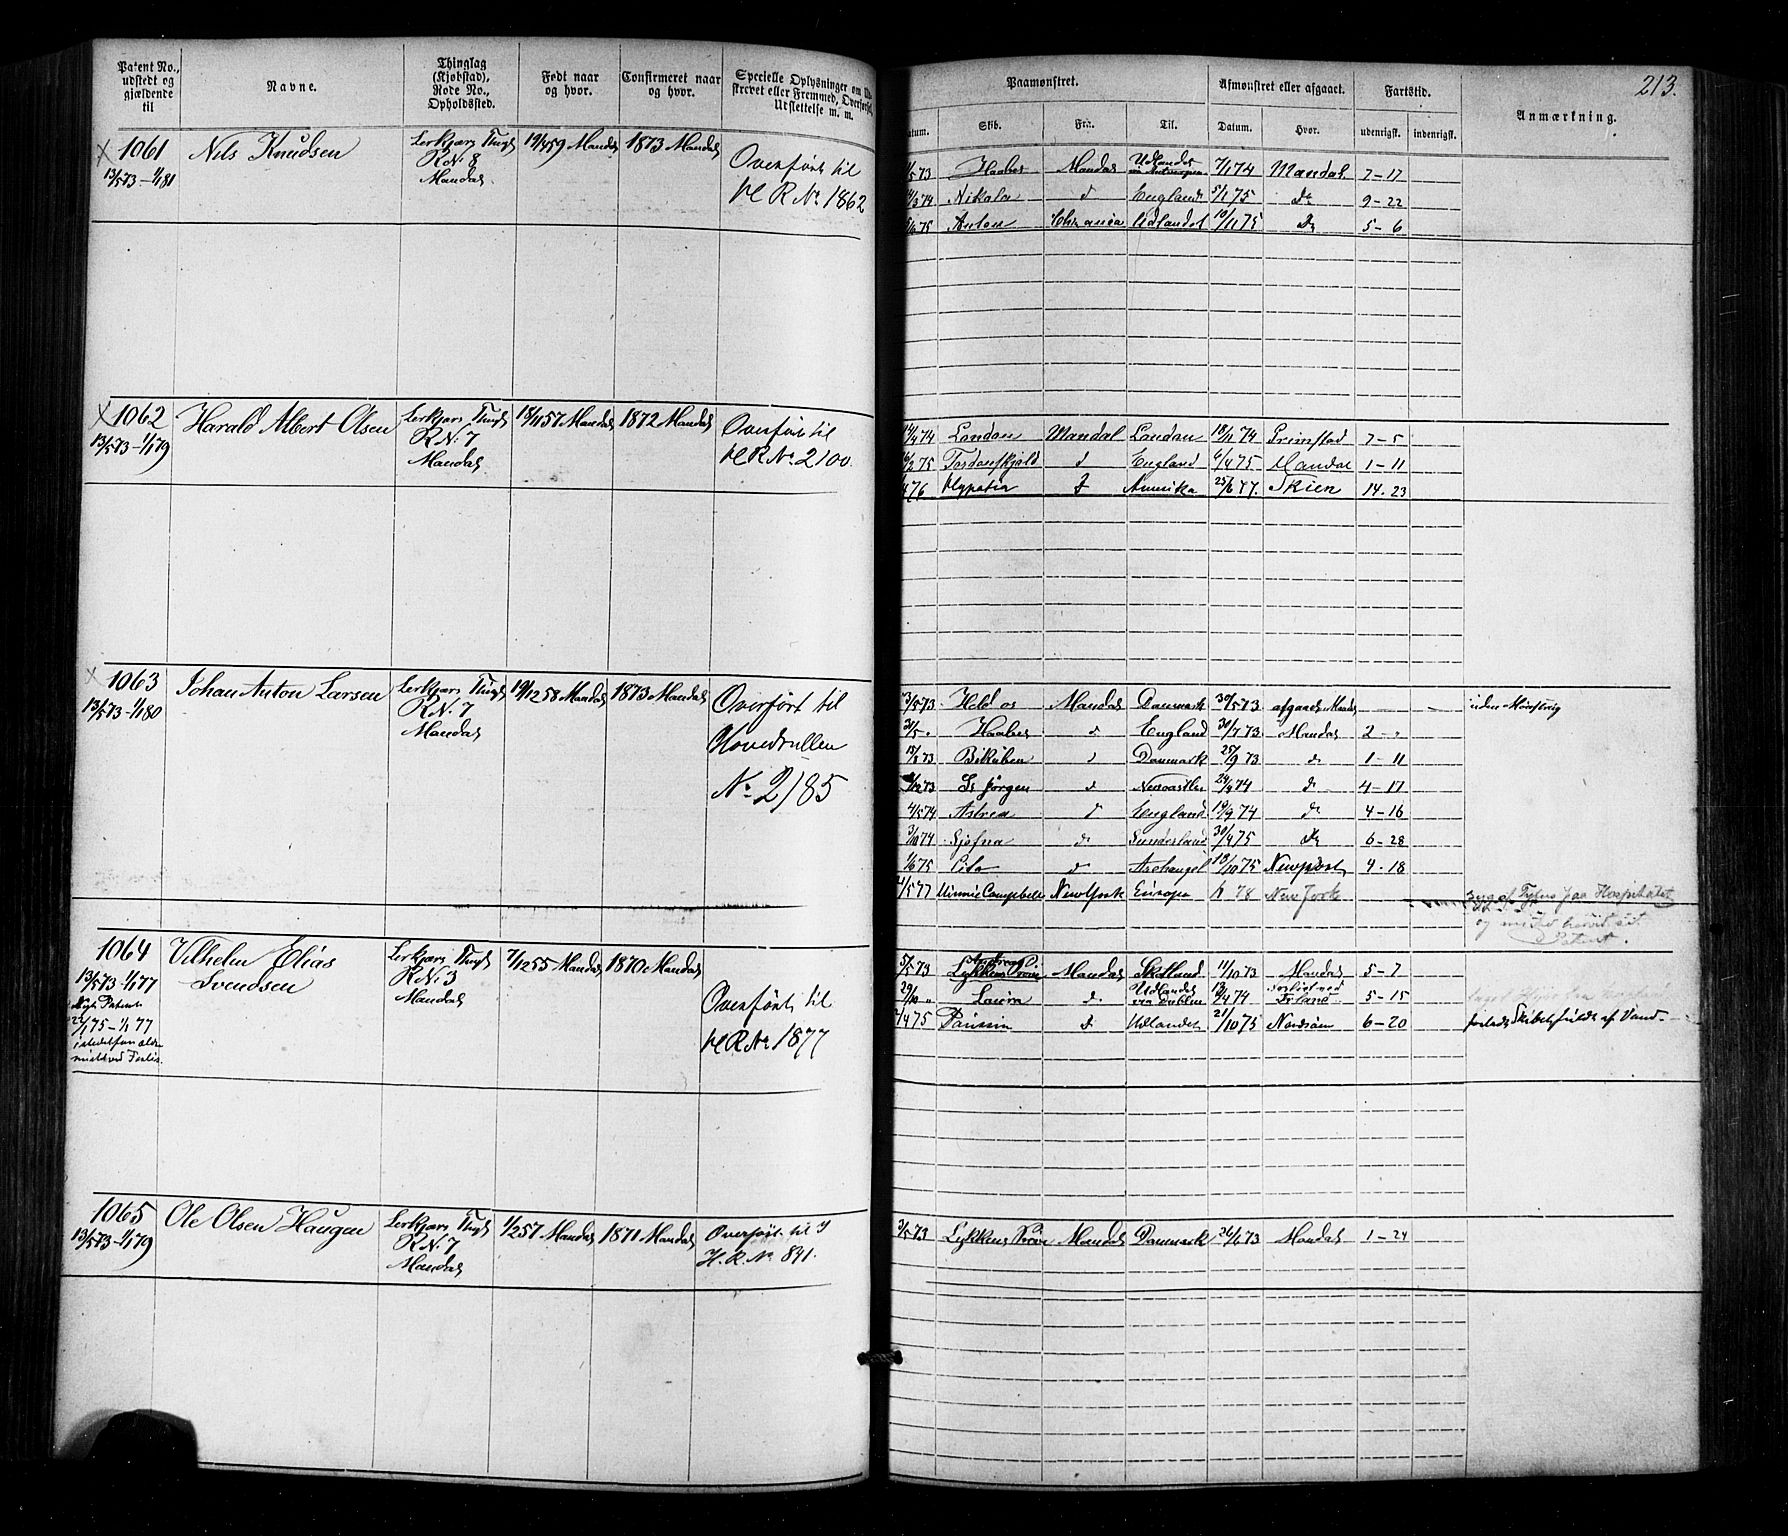 213.
Patent No., udstedt og gjældende til
Navne.
Thinglag (Kjøbstad), Rode No., Opholdssted.
Født naar og hvor.
Confirmeret naar og hvor.
Specielle Oplysninger om
streвet eller Fremmed, Overførsel,
Udslettelse m. m.
Paamønstret.
Afmønstret eller afgaaet.
Fartstid.
Anmærkning.
Datum. Skib. Fra. Til. Datum. Hvor. udenrigsk. indenrigsk.
1061 Nils Knudsen Lerkjærs Thingl 19/4 59 Mandal 1873 Mandal
13/5 73 – 1/1 81 R N. 8 Overført til
Mandal H R No 1862
/5 73 Haabet Mandal Udlandet 7/1 74 Mandal 7–17
/3 74 Nikola d England 5/1 75 do 9–22
/6 75 Anton Chr.ania Udlandet 10/11 75 do 5–6
1062 Harald Albert Olsen Lerkjærs Thingl 18/11 57 Mandal 1872 Mandal
13/5 73 – 1/1 79 R N. 7 Overført til
Mandal H R No. 2100.
14/4 74 London Mandal London 18/11 74 Grimstad 7–5
6/2 75 Tordenskjold d England 6/4 75 Mandal 1–11
/4 76 Hypatia d Amerika 25/6 77. Skien 14–23
1063 Johan Anton Larsen Lerkjærs Thingl 19/12 58 Mandal 1873 Mandal
13/5 73 – 1/1 80 R N. 7 Overført til
Mandal Hovedrullen
No 2185
13/5 73 Held os Mandal Danmark 30/5 73 afgaaet Mandal uden Mønstring
30/5 " Haabet d England 30/7 73 Mandal 2 – "
15/8 73 Bikuben d Danmark 25/9 73 d 1–11
/12 73 St Jørgen d Newcastle 24/4 74 do 4–17
4/5 74 Astrea d England 19/9 74 do 4–16
3/10 74 Sjofna do Sunderland 30/4 75 do 6–28
1/6 75 Cito d Archangel 13/10 75 Newport 4–18
/5 77 Minnie Campbell New York Europa 78 New York
paa Hospitalet
og
Patent.
1064 Vilhelm Elias Lerkjærs Thingl 7/12 55 Mandal 1870 Mandal
13/5 73 – 1/1 77 Svendsen R N. 3
Nyt Patent Mandal Overført til
22/1 75 – 1/1 77 H R No 1877
istedetfor
5/5 73 Lykkens Prøve Mandal Skotland 11/10 73 Mandal 5–7
29/10 " Laura do Udlandet via Dublin 13/4 74 forlist ved Irland 5–15
/4 75 do Udlandet 21/10 75 Nordsøen 6–20 forlodt Skibet fuldt af Vand
1065 Ole Olsen Haugen Lerkjærs Thingl 1/2 57 Mandal 1871 Mandal Overført til
13/5 73 – 1/1 79 R N. 7 H. R. No 891.
Mandal
3/5 73 Lykkens Prøve Mandal Danmark 26/6 73 Mandal 1–24